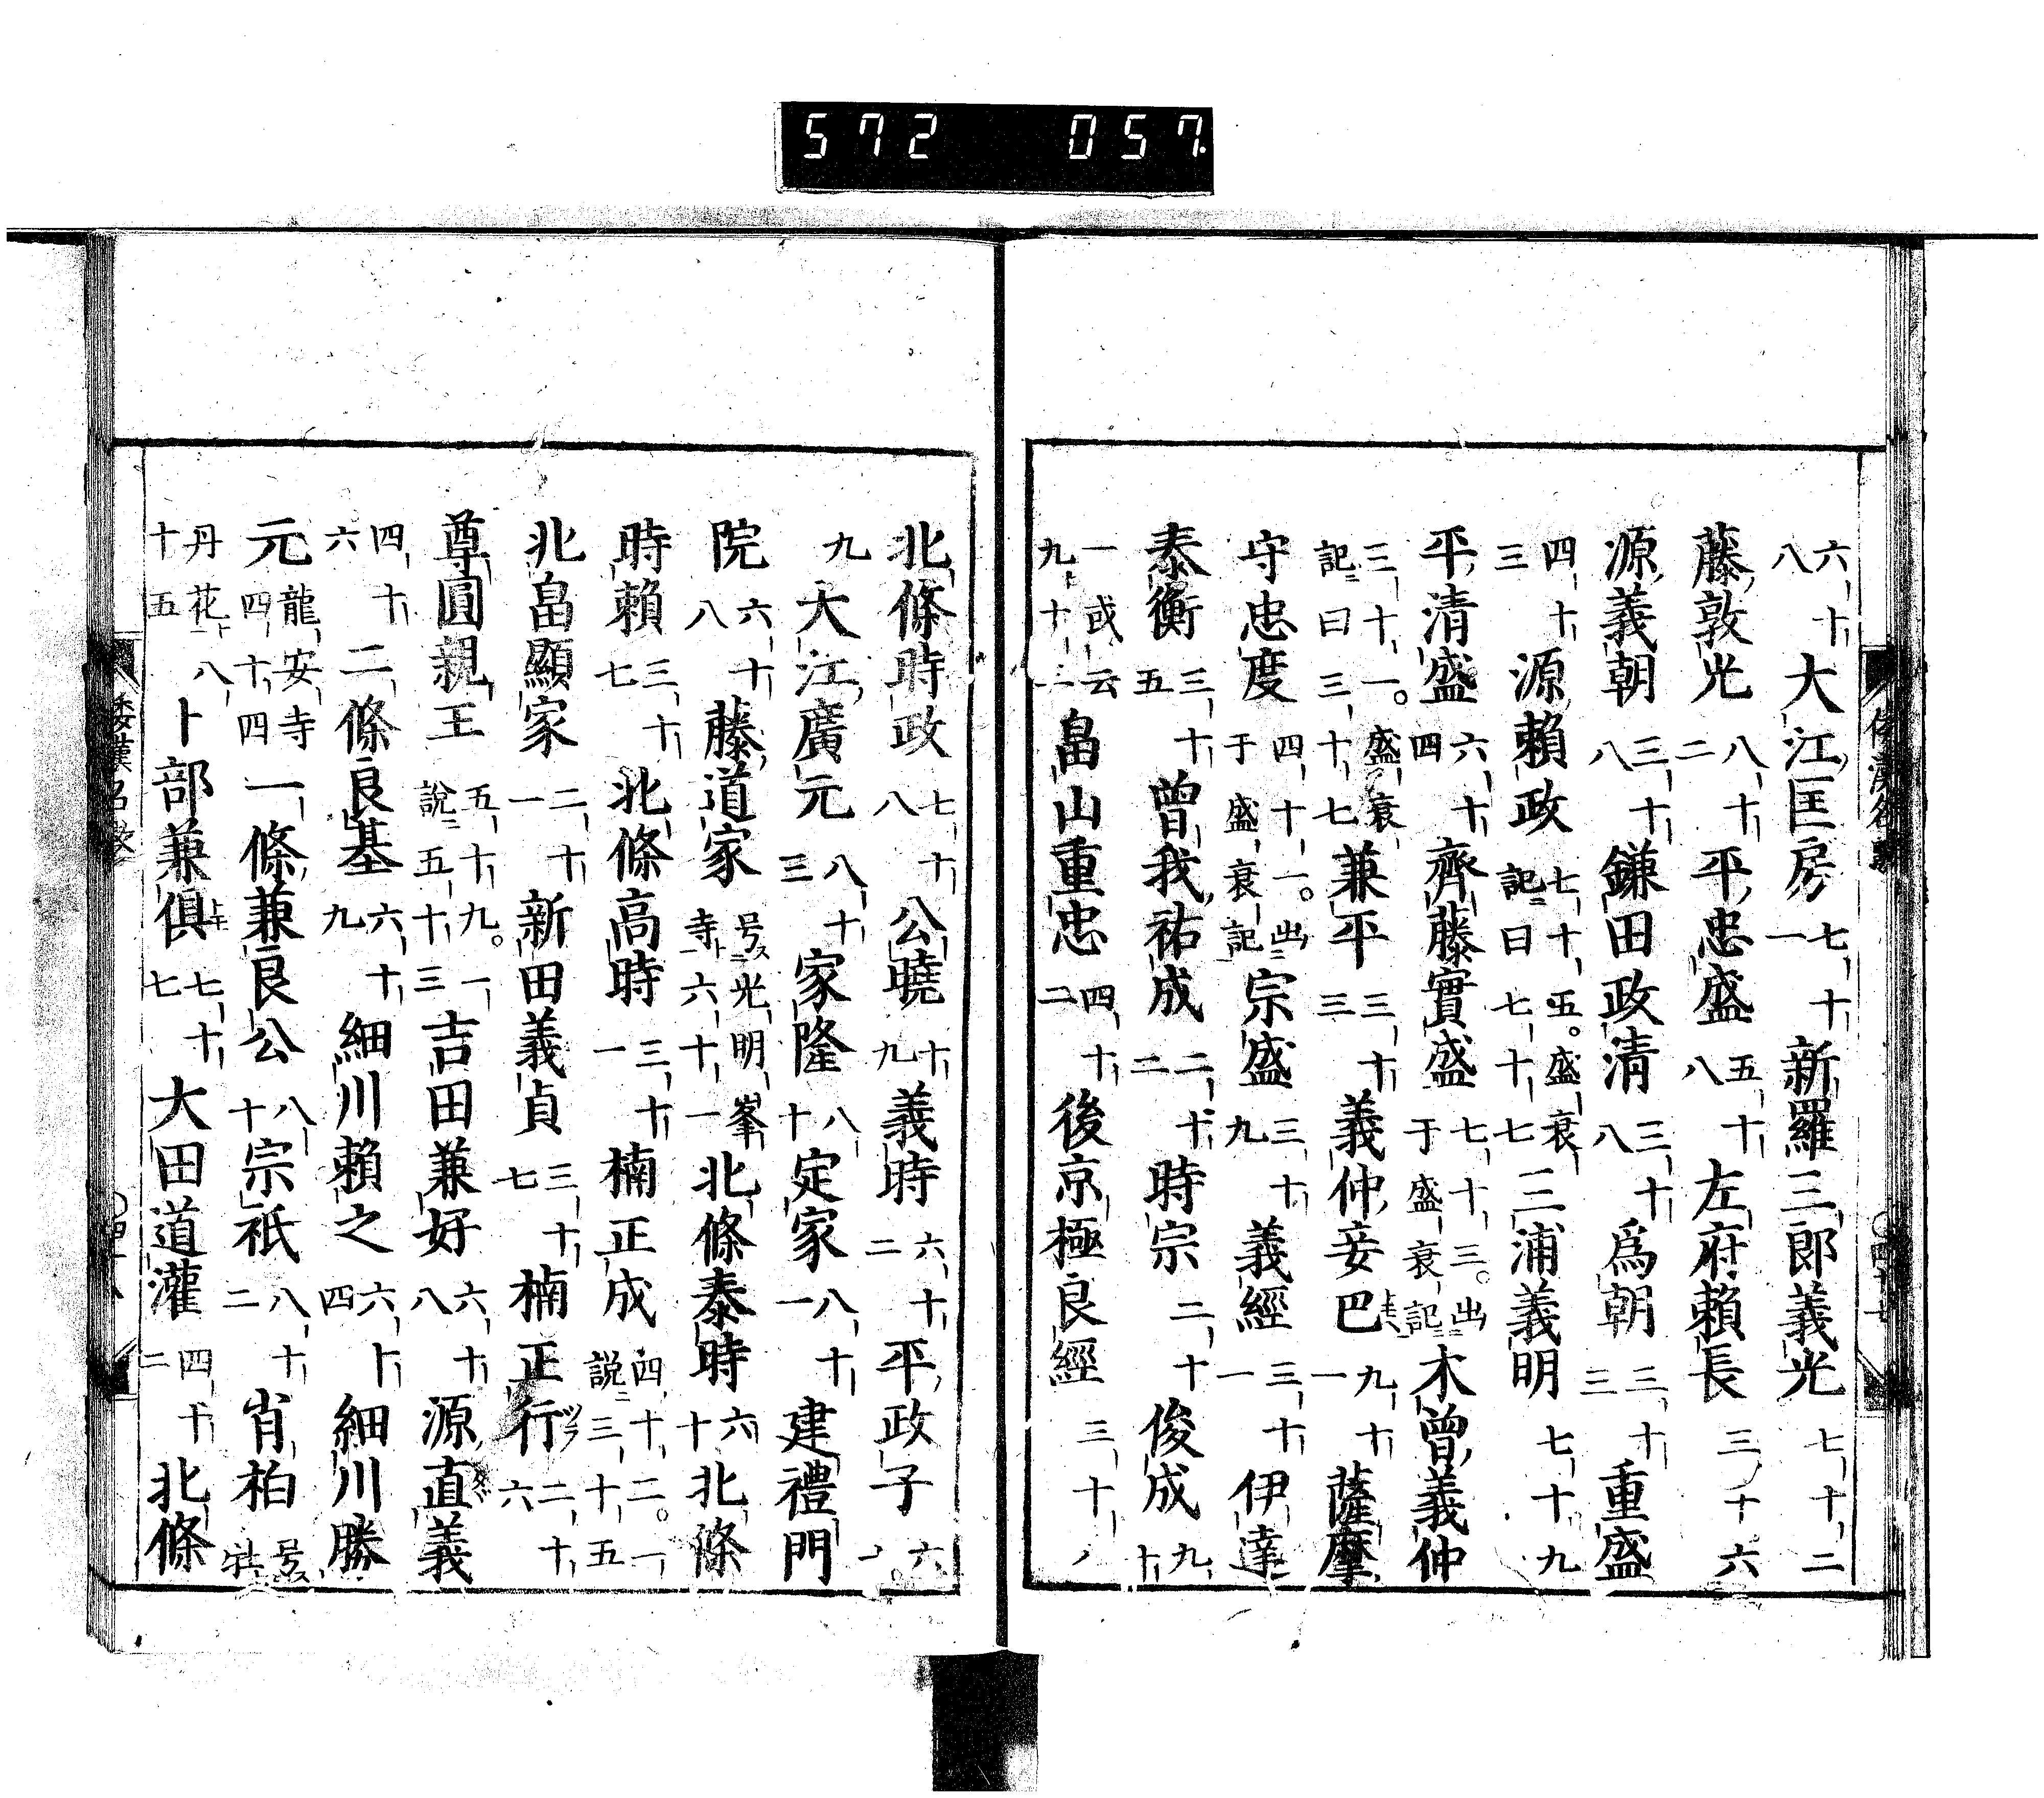 572 057
六十八 大江匡房 七十一 新羅三郎義光 七十二
藤敦光 八十二 平忠盛 五十八 左府賴長 三十六
源義朝 三十八 鎌田政清 三十八 爲朝 三十三 重盛
四十三 源賴政 七十五。盛衰記ニ曰七十七 三浦義明 七十九
平清盛 六十四 齊藤實盛 七十三。出于盛衰記ニ 木曾義仲
三十一。盛衰記ニ曰三十七 兼平 三十三 義仲妾巴 九十一 薩摩
守忠度 四十一。出于盛衰記ニ 宗盛 三十九 義經 三十一 伊達
泰衡 三十五 曾我祐成 二十二 時宗 二十 俊成 九十
一或云九十二 畠山重忠 四十二 後京極良經 三十八
北條時政 七十八 公曉 十九 義時 六十二 平政子 六
九 大江廣元 八十三 家隆 八十 定家 八十一 建禮門
院 六十八 藤道家 号ス光明峯寺ト六十一 北條泰時 六十 北條
時賴 三十七 北條高時 三十一 楠正成 四十二。一説ニ三十五
北畠顯家 二十一 新田義貞 三十七 楠正行 二十六
尊圓親王 五十九。一説ニ五十三 吉田兼好 六十八 源直義
四十六 二條良基 六十九 細川賴之 六十四 細川勝
元 龍安寺四十四 一條兼良公 八十 宗祇 八十二 肖柏 号ス牡
丹花ト八十五 卜部兼俱 七十七 大田道灌 四十二 北條